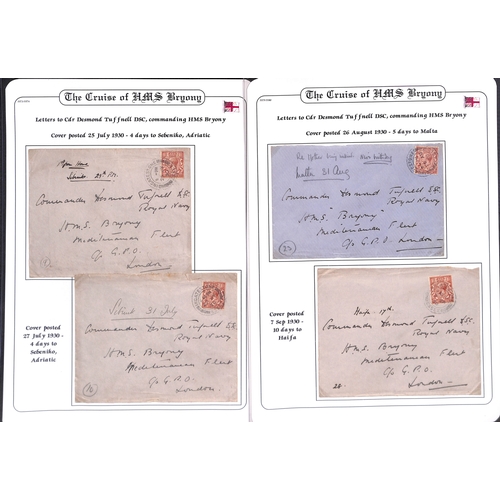 The Cruise of HMS Bryony
Letters to Cdr Desmond Tuffnell DSC, commanding HMS Bryony
Cover posted 25 July 1930 - 4 days to Sebeniko, Adriatic
Commander Desmond Tufnell
Royal Navy
H.M.S. Bryony
Mediterranean Fleet
C/o G.P.O.
London
Cover posted
27 July 1930 -
4 days to
Sebeniko,
Adriatic
31 July
Commander Desmond Tufnell
Royal Navy
H.M.S. Bryony
Mediterranean Fleet
C/o G.P.O.
London
The Cruise of HMS Bryony
Letters to Cdr Desmond Tuffnell DSC, commanding HMS Bryony
Cover posted 26 August 1930 - 5 days to Malta
Malta 31 Aug
Commander Desmond Tufnell
Royal Navy
H.M.S. "Bryony"
Mediterranean Fleet
C/o G.P.O.
London
23
Cover posted
7 Sep 1930 -
10 days to
Haifa
Haifa 17th
Commander Desmond Tufnell
Royal Navy
H.M.S. Bryony
Mediterranean Fleet
C/o G.P.O.
London
28